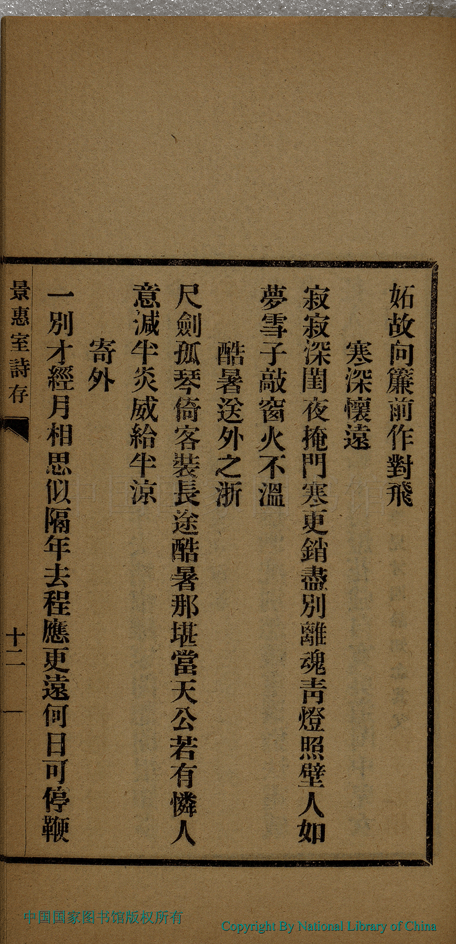 妬故向簾前作對飛
寒深懷遠
寂寂深閨夜掩門寒更銷盡別離魂靑燈照壁人如
夢雪子敲窗火不溫
酷暑送外之浙
尺劍孤琴倚客裝長途酷暑那堪當天公若有憐人
意減半炎威給半涼
寄外
一別才經月相思似隔年去程應更遠何日可停鞭
景惠室詩存
十二
中国国家图书馆版权所有
Copyright By National Library of China